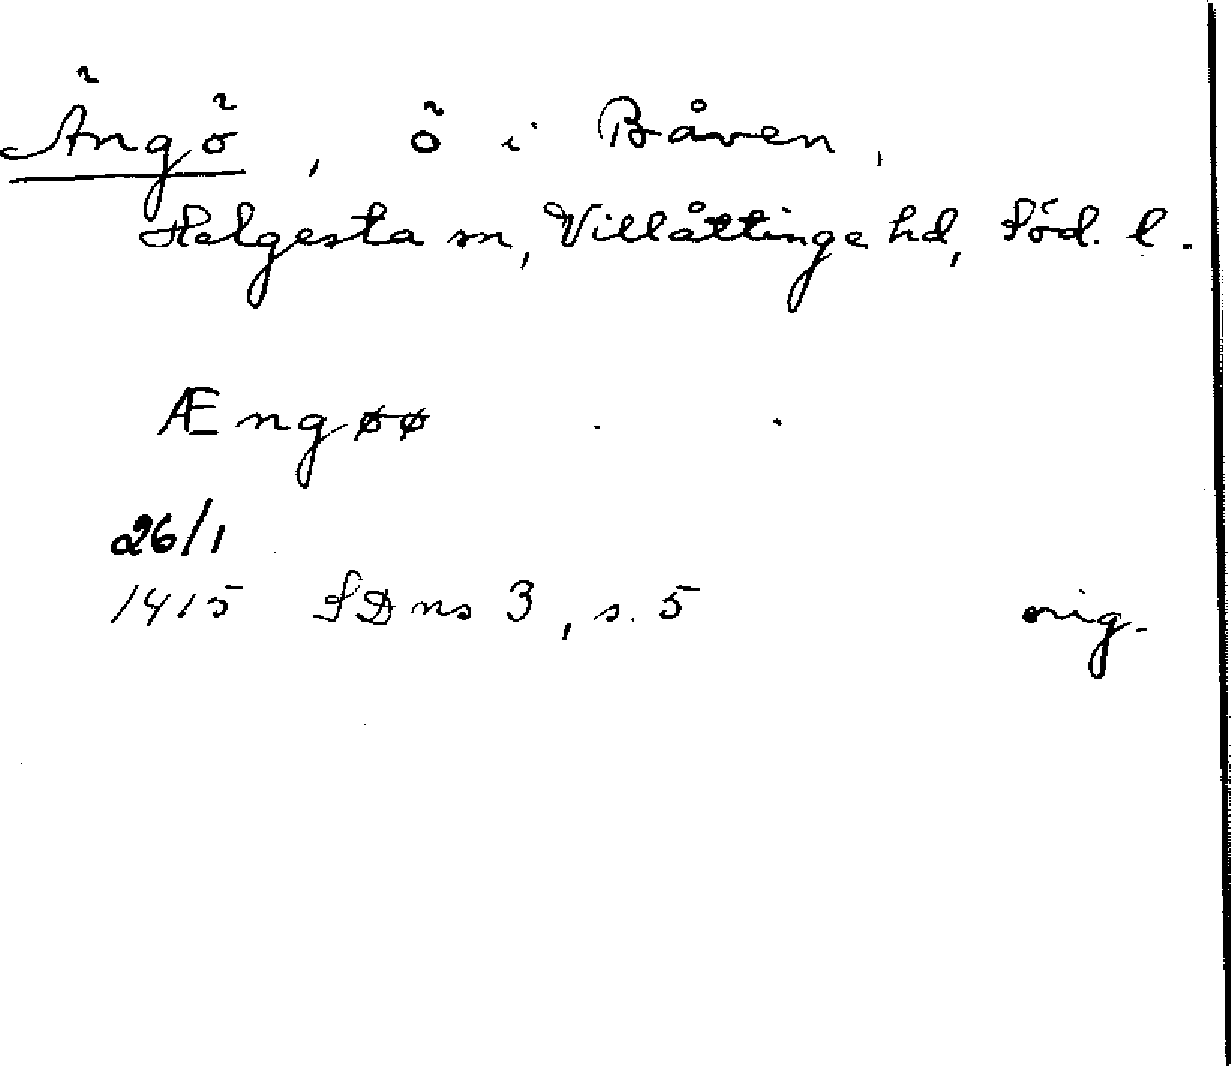 Ängö, ö i Båven,
Helgesta sn, Villåttinge hd, Söd. l.
Ængøø
26/1
1415 SD ns 3, s. 5 orig.